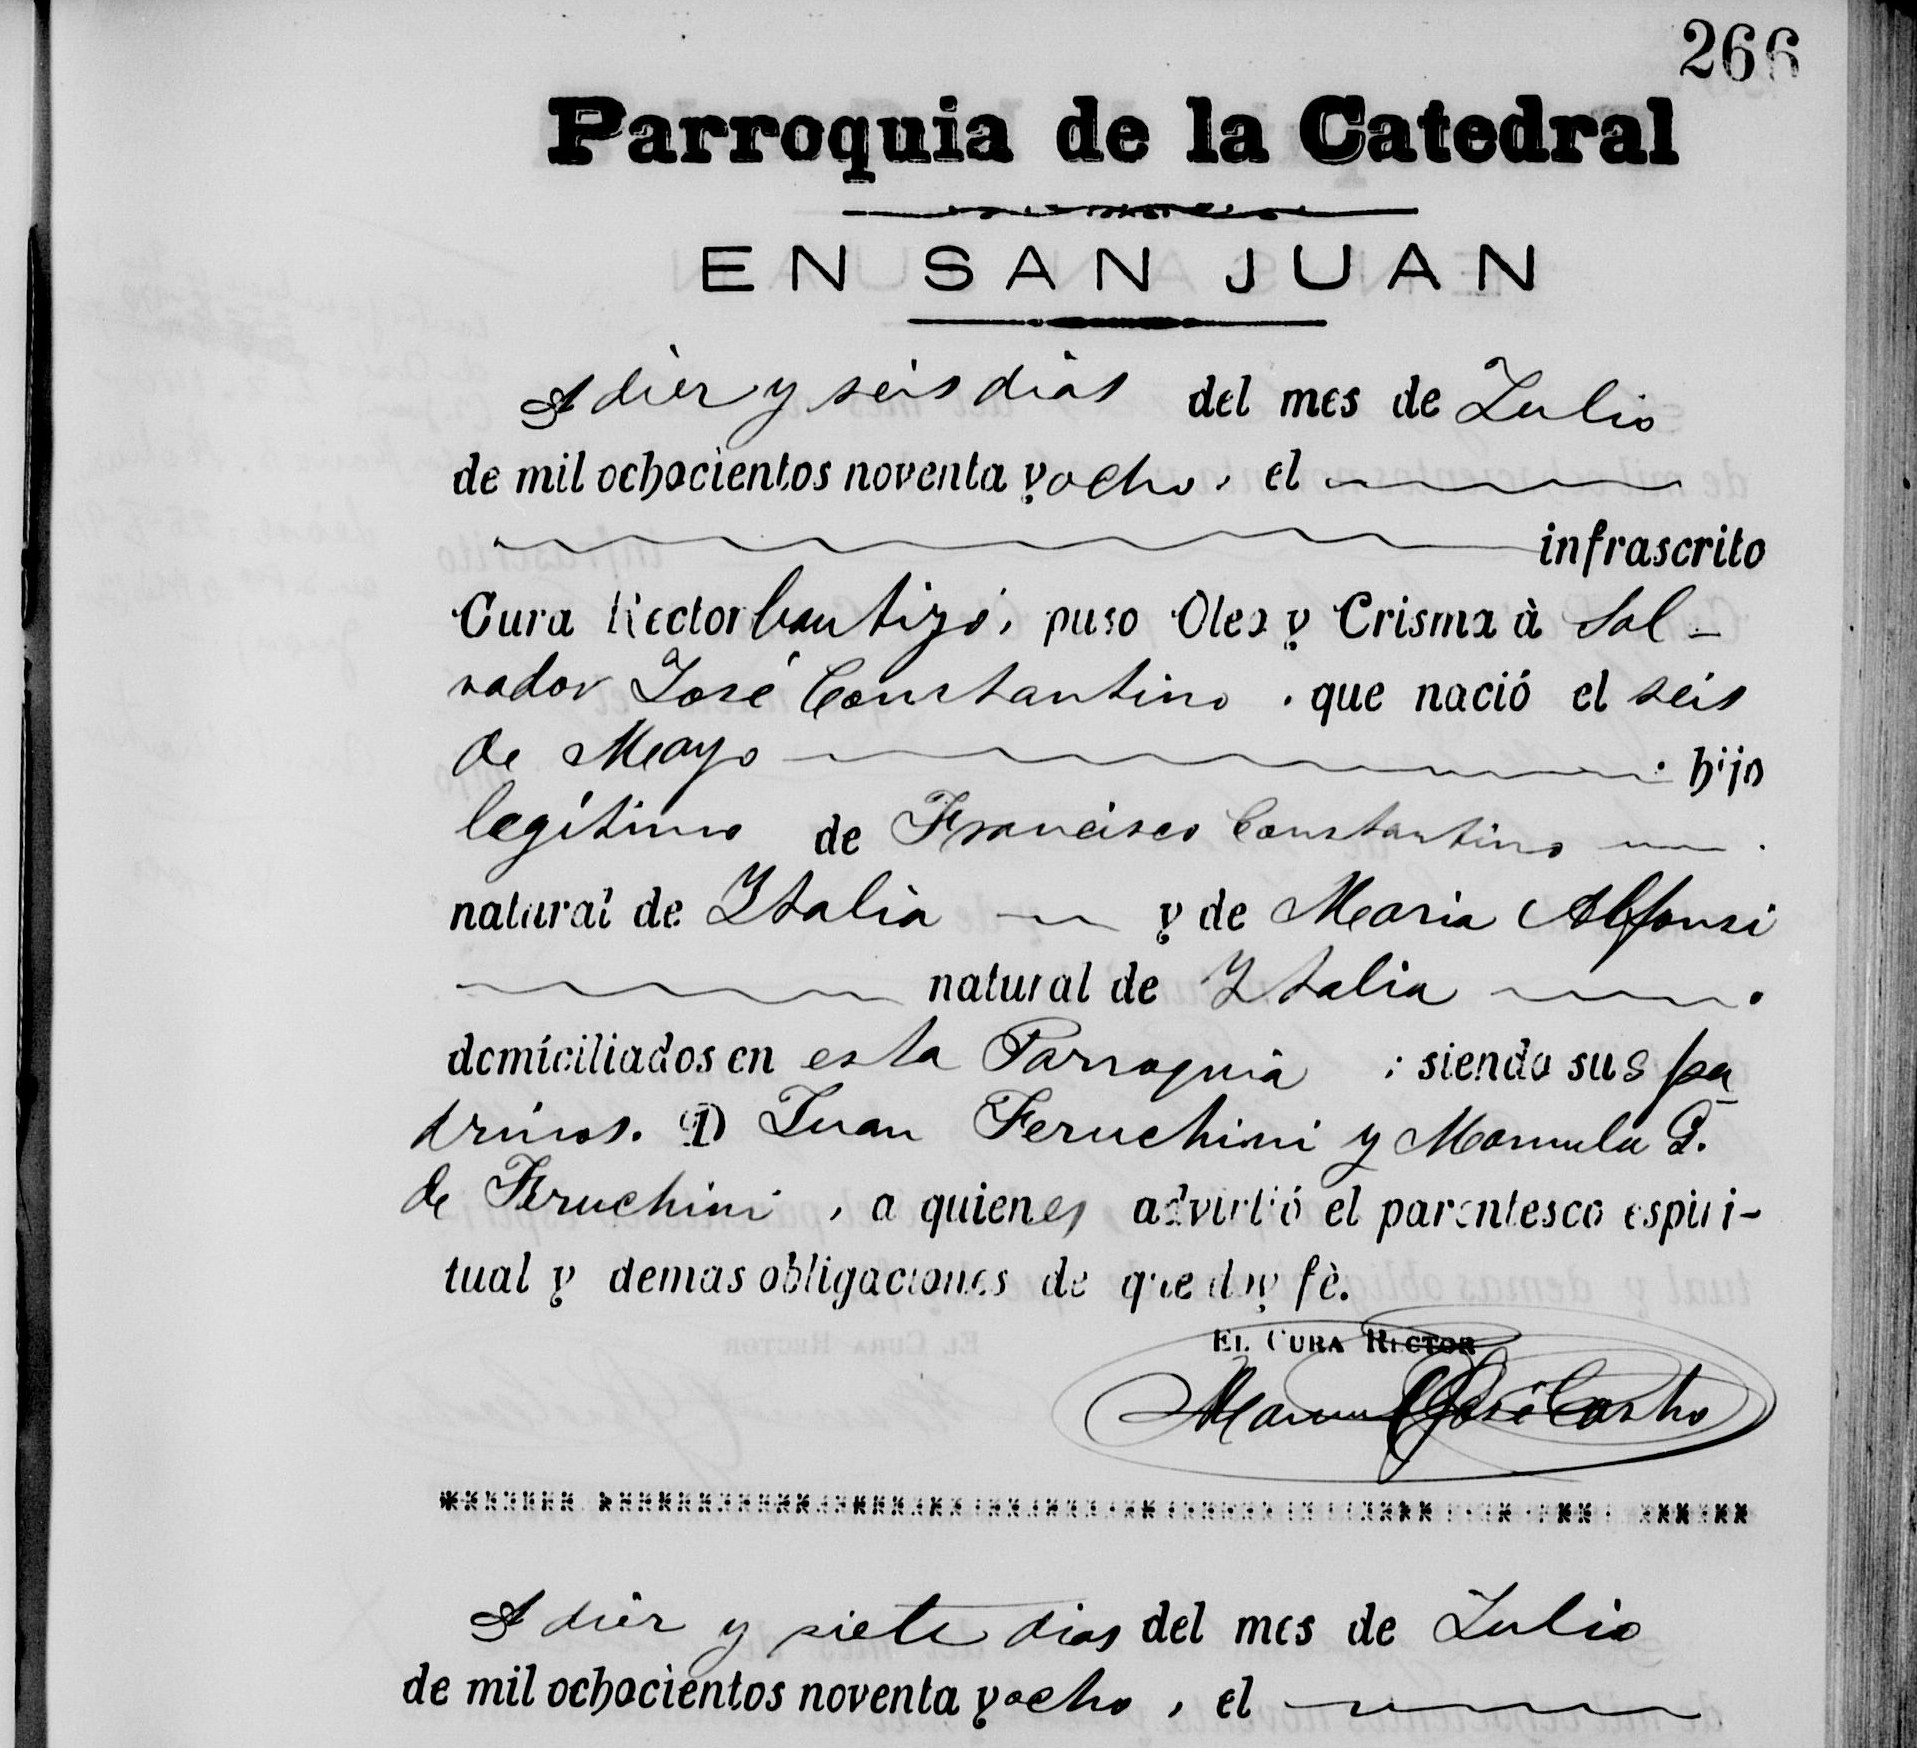 266
Parroquia de la Catedral
EN SAN JUAN
A dièz y séis dìas del mes de Julio
de mil ochocientos noventa y ocho, el
infrascrito
Cura Rector bautizó, puso Oleo y Crisma à Sal-
vador José Constantino, que nació el séis
de Mayo hijo
legítimo de Francisco Constantino
natural de Italia y de Maria Alfonsi
natural de Italia
domiciliados en esta Parroquia; siendo sus pa
drinos. D Juan Feruchini y Manuela G.
de Feruchini, a quienes advirtió el parentesco espiri-
tual y demas obligaciones de que doy fè.
EL CURA RECTOR
Manuel José Castro
A dièz y siete dias del mes de Julio
de mil ochocientos noventa y ocho, el